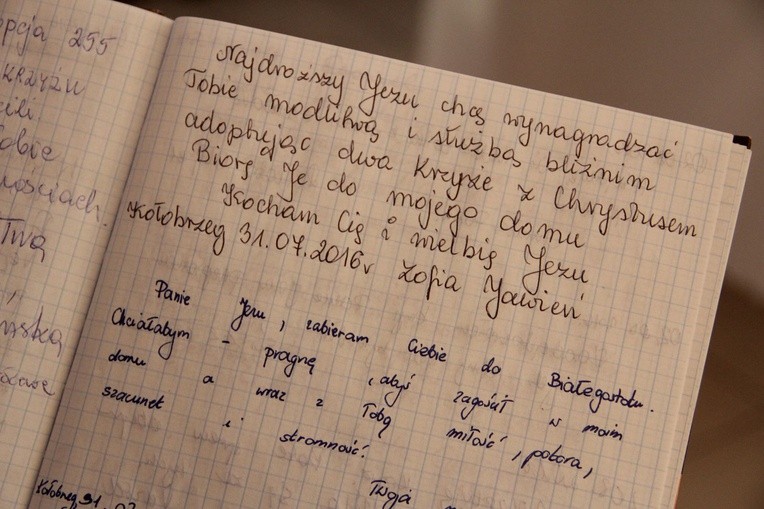 opcja 255
KRZYŻU
Tobie
nościach.
Twą
Najdroższy Jezu chcę wynagradzać
Tobie modlitwą i służbą bliźnim
adoptując dwa Krzyże z Chrystusem
Biorę Je do mojego domu
Kocham Cię i wielbię Jezu
Kołobrzeg 31.07.2016r Zofia Jawień
Panie Jezu, zabieram Ciebie do Białegostoku.
Chciałabym - pragnę, abyś zagościł w moim
domu a wraz z Tobą miłość, pokora,
szacunek i skromność.
Twoja
Kołobrzeg 31.07